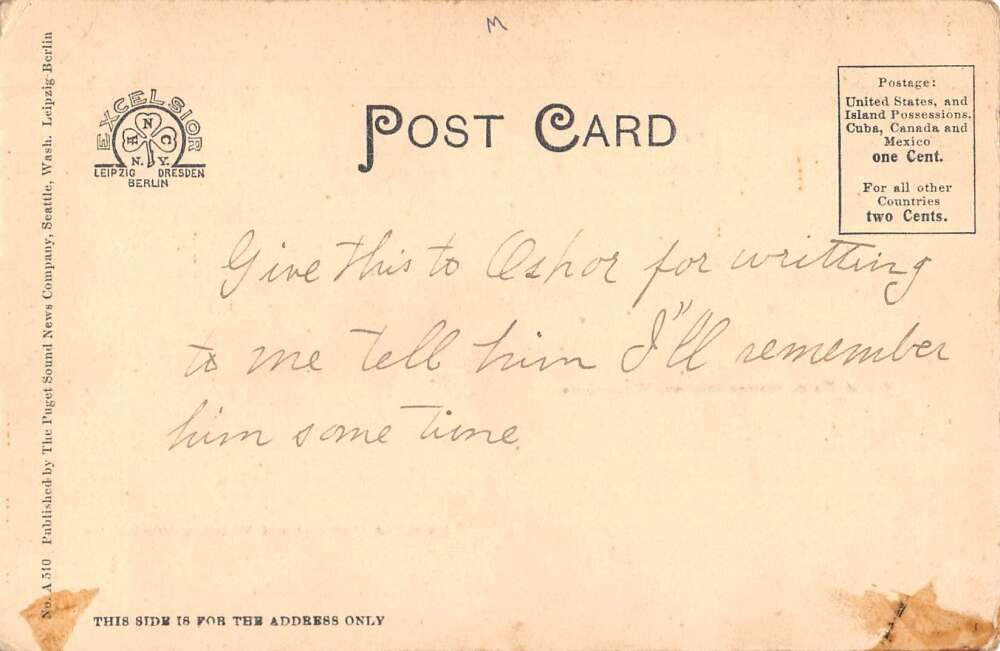 M
No. A 510 Published by The Puget Sound News Company, Seattle, Wash. Leipzig-Berlin
EXCELSIOR
N
H C
N. Y.
LEIPZIG DRESDEN
BERLIN
POST CARD
Postage:
United States, and
Island Possessions,
Cuba, Canada and
Mexico
one Cent.
For all other
Countries
two Cents.
Give this to for writting
to me tell him I"ll remember
him some time.
THIS SIDE IS FOR THE ADDRESS ONLY